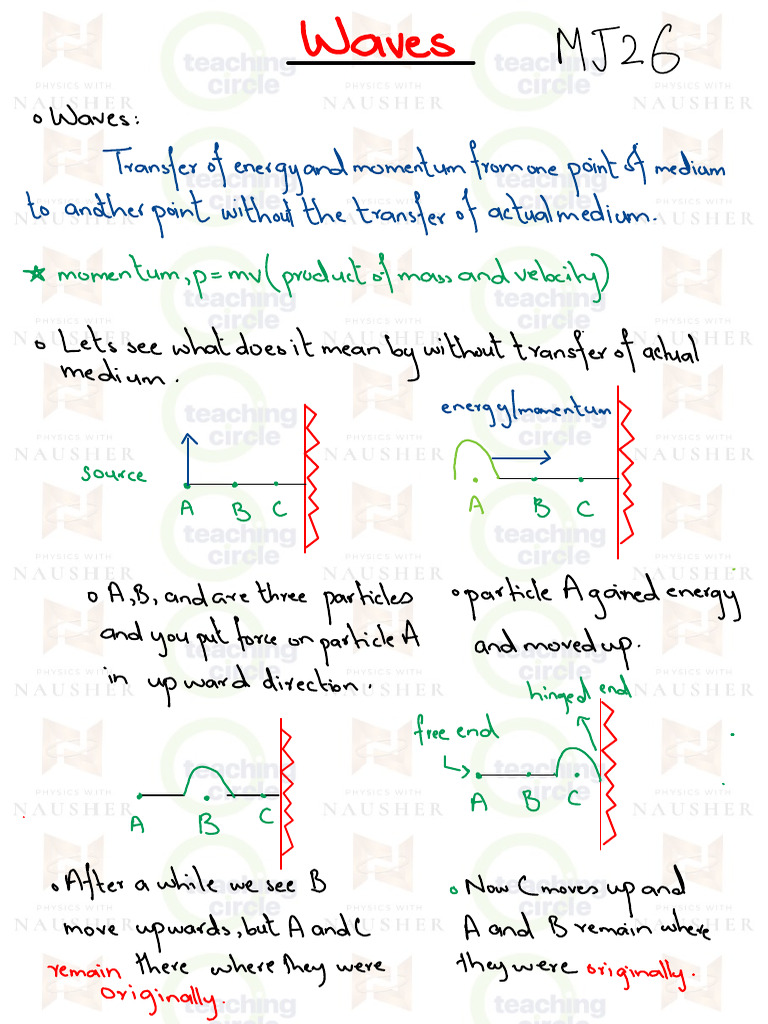 Waves MJ26
Waves:
Transfer of energy and momentum from one point of medium
to another point without the transfer of actual medium.
* momentum, p = mv (product of mass and velocity)
Lets see what does it mean by without transfer of actual
medium.
source
A B C
energy/momentum
A B C
A, B, and are three particles
and you put force on particle A
in upward direction.
particle A gained energy
and moved up.
A B C
free end
hinged end
A B C
After a while we see B
move upwards, but A and C
remain there where they were
originally.
Now C moves up and
A and B remain where
they were originally.
teaching circle
PHYSICS WITH
NAUSHER